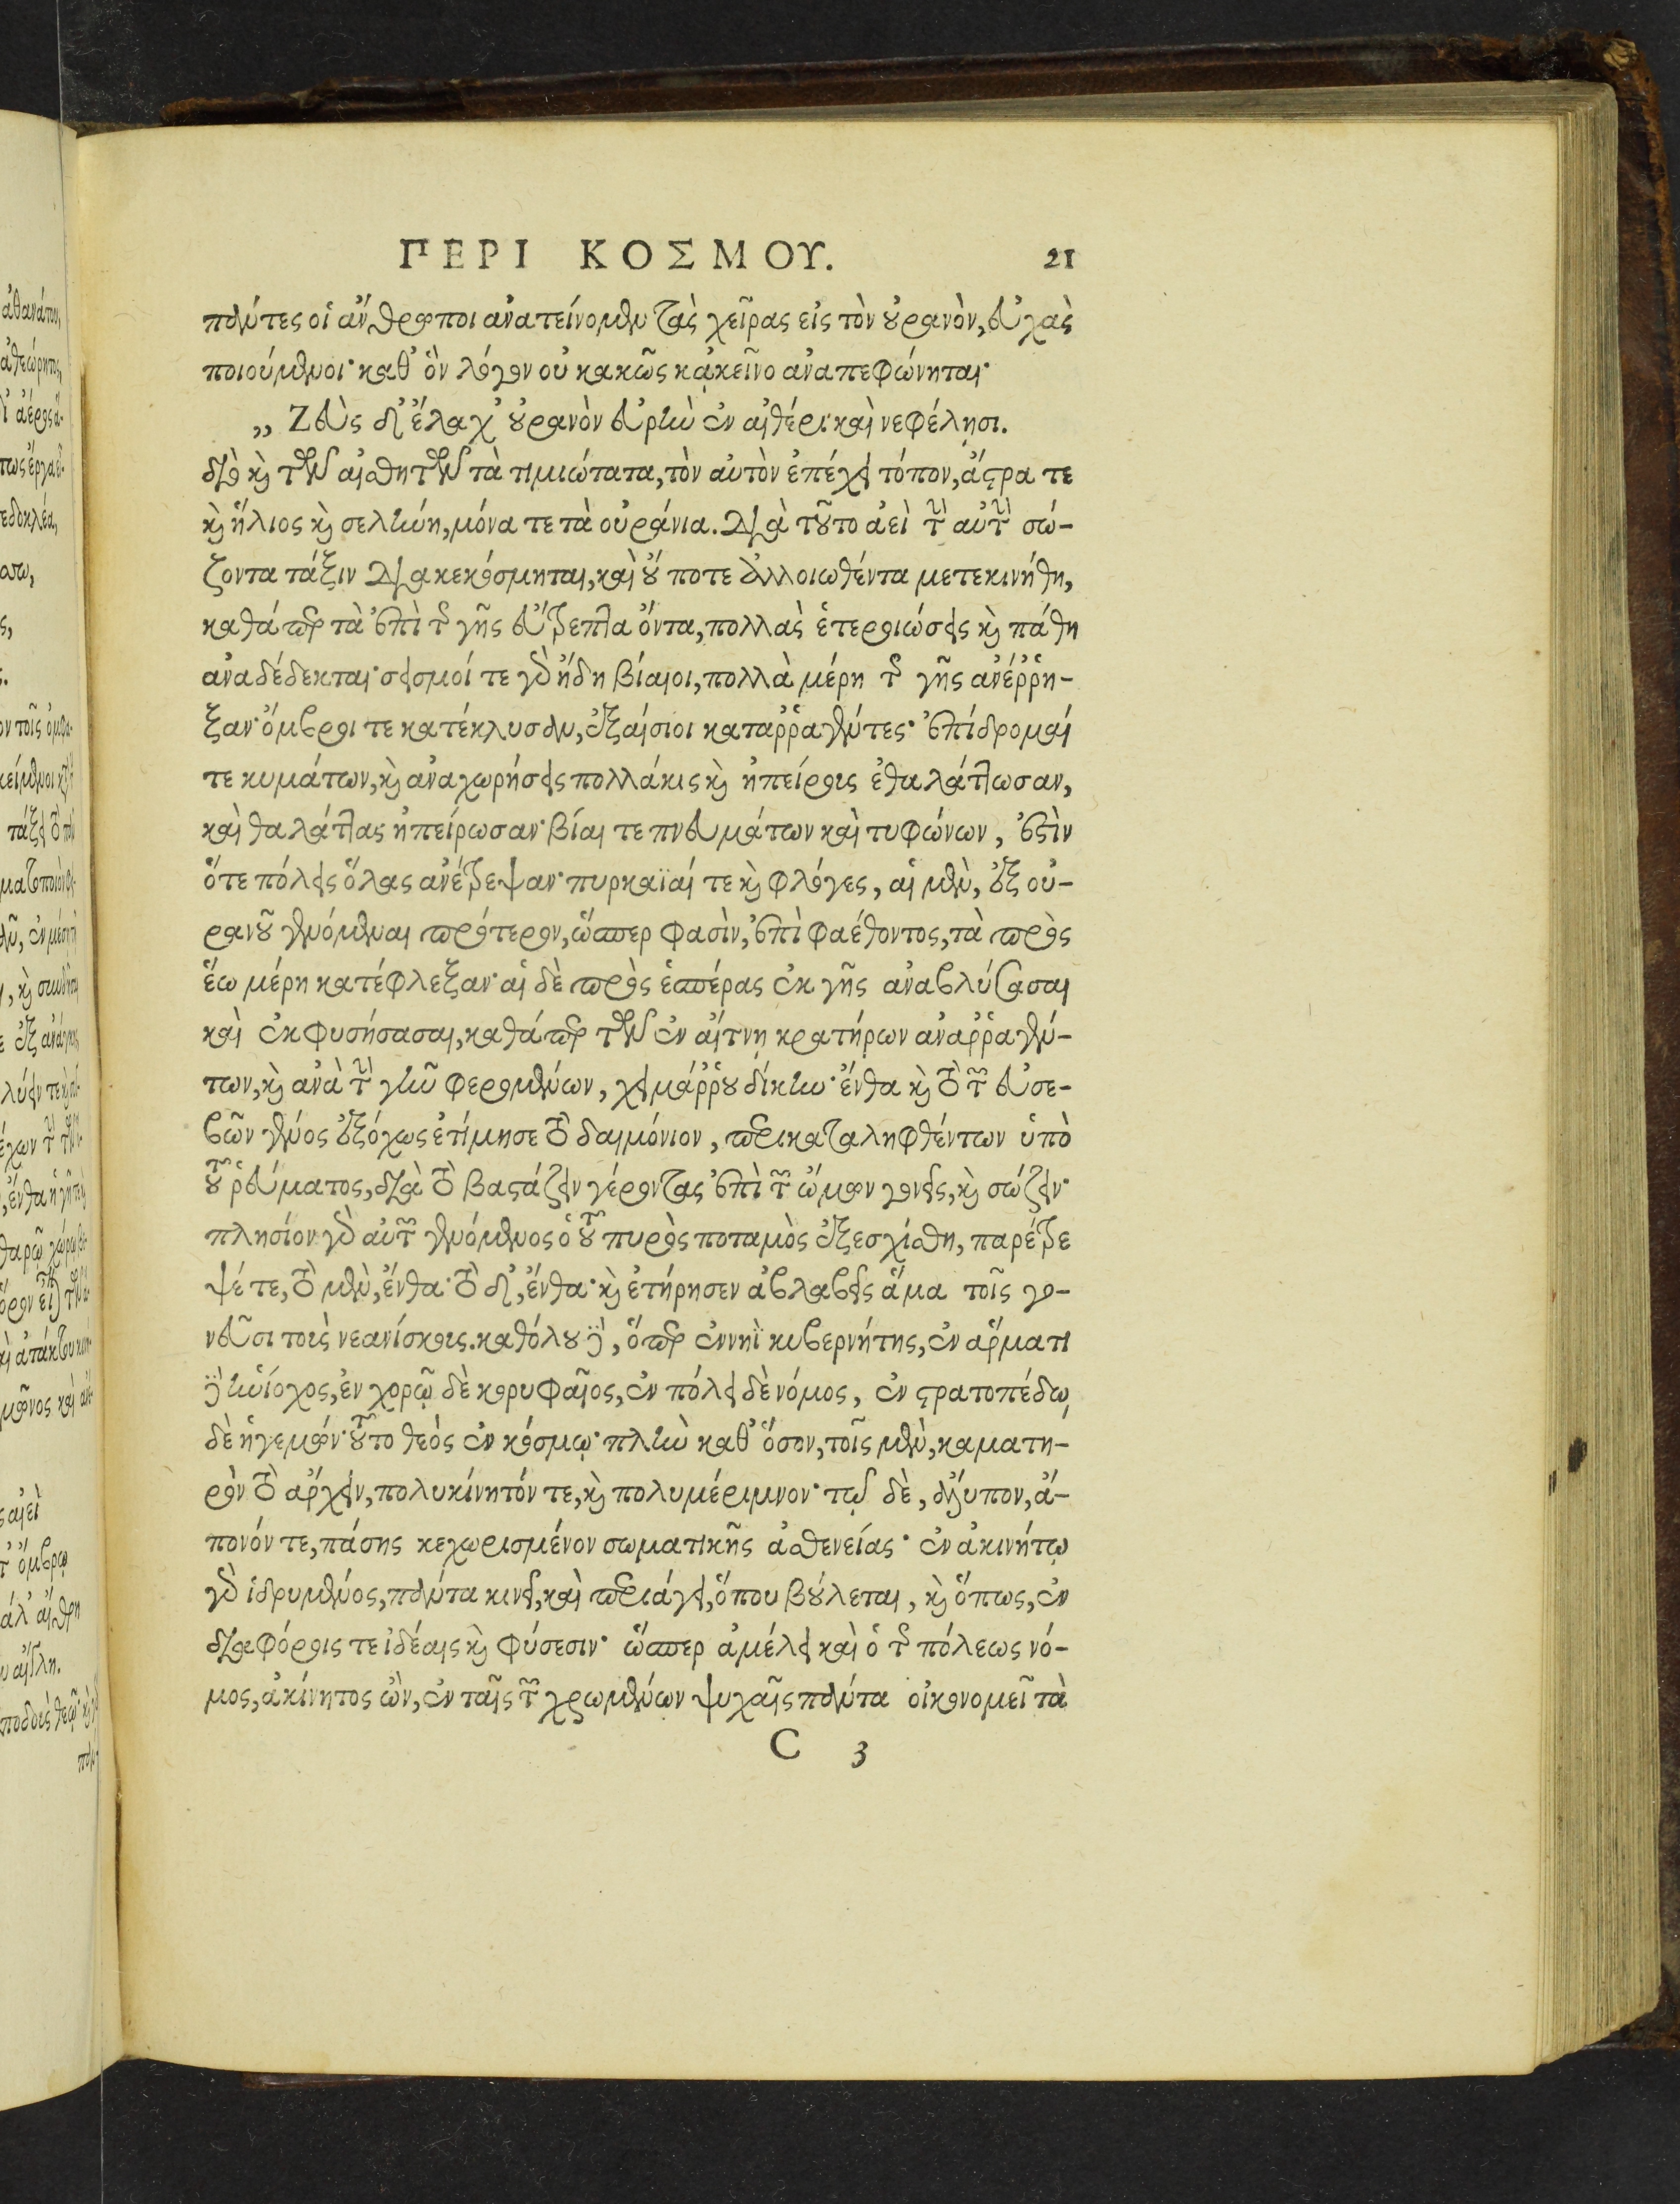 ΠΕΡΙ ΚΟΣΜΟΥ. 21
πάντες οἱ ἄνθρωποι ἀνατείνομεν τὰς χεῖρας εἰς τὸν οὐρανὸν, εὐχὰς
ποιούμενοι· καθ' ὃν λόγον οὐ κακῶς κἀκεῖνο ἀναπεφώνηται·
„ Ζεὺς δ' ἔλαχ' οὐρανὸν εὐρὺν ἐν αἰθέρι καὶ νεφέλησι.
διὸ καὶ τῶν αἰσθητῶν τὰ τιμιώτατα, τὸν αὐτὸν ἐπέχει τόπον, ἄστρα τε
καὶ ἥλιος καὶ σελήνη, μόνα τε τὰ οὐράνια. Διὰ τοῦτο ἀεὶ τὴν αὐτὴν σώ-
ζοντα τάξιν διακεκόσμηται, καὶ οὔ ποτε ἀλλοιωθέντα μετεκινήθη,
καθάπερ τὰ ἐπὶ τῆς γῆς εὔτρεπτα ὄντα, πολλὰς ἑτεροιώσεις καὶ πάθη
ἀναδέδεκται· σεισμοί τε γὰρ ἤδη βίαιοι, πολλὰ μέρη τῆς γῆς ἀνέῤῥη-
ξαν· ὄμβροι τε κατέκλυσαν, ἐξαίσιοι καταῤῥαγέντες· ἐπίδρομαί
τε κυμάτων, καὶ ἀναχωρήσεις πολλάκις καὶ ἠπείροις ἐθαλάττωσαν,
καὶ θαλάττας ἠπείρωσαν· βίαι τε πνευμάτων καὶ τυφώνων, ἐστὶν
ὅτε πόλεις ὅλας ἀνέτρεψαν· πυρκαϊαί τε καὶ φλόγες, αἱ μὲν, ἐξ οὐ-
ρανοῦ γενόμεναι πρότερον, ὥσπερ φασὶν, ἐπὶ φαέθοντος, τὰ πρὸς
ἕω μέρη κατέφλεξαν· αἱ δὲ πρὸς ἑσπέρας ἐκ γῆς ἀναβλύσασαι
καὶ ἐκφυσήσασαι, καθάπερ τῶν ἐν αἴτνῃ κρατήρων ἀναῤῥαγέν-
των, καὶ ἀνὰ τὴν γῆν φερομένων, χειμάῤῥου δίκην· ἔνθα καὶ τὸ τῶν εὐσε-
βῶν γένος ἐξόχως ἐτίμησε τὸ δαιμόνιον, περικαταληφθέντων ὑπὸ
τοῦ ῥεύματος, διὰ τὸ βαστάζειν γέροντας ἐπὶ τῶν ὤμων γονεῖς, καὶ σώζειν·
πλησίον γὰρ αὐτῶν γενόμενος ὁ τοῦ πυρὸς ποταμὸς ἐξεσχίσθη, παρέτρε
ψέ τε, τὸ μὲν, ἔνθα· τὸ δ', ἔνθα· καὶ ἐτήρησεν ἀβλαβεῖς ἅμα τοῖς γο-
νεῦσι τοὺς νεανίσκοις. καθόλου δὲ, ὅπερ ἐν νηῒ κυβερνήτης, ἐν ἅρματι
δὲ ἡνίοχος, ἐν χορῷ δὲ κορυφαῖος, ἐν πόλει δὲ νόμος, ἐν στρατοπέδῳ
δὲ ἡγεμών· τοῦτο θεός ἐν κόσμῳ· πλὴν καθ' ὅσον, τοῖς μὲν, καματη-
ρὸν τὸ ἄρχειν, πολυκίνητόν τε, καὶ πολυμέριμνον· τῷ δὲ, ἄλυπον, ἄ-
πονόν τε, πάσης κεχωρισμένον σωματικῆς ἀσθενείας· ἐν ἀκινήτῳ
γὰρ ἱδρυμένος, πάντα κινεῖ, καὶ περιάγει, ὅπου βούλεται, καὶ ὅπως, ἐν
διαφόροις τε ἰδέαις καὶ φύσεσιν· ὥσπερ ἀμέλει καὶ ὁ τῆς πόλεως νό-
μος, ἀκίνητος ὢν, ἐν ταῖς τῶν χρωμένων ψυχαῖς πάντα οἰκονομεῖ τὰ
C 3